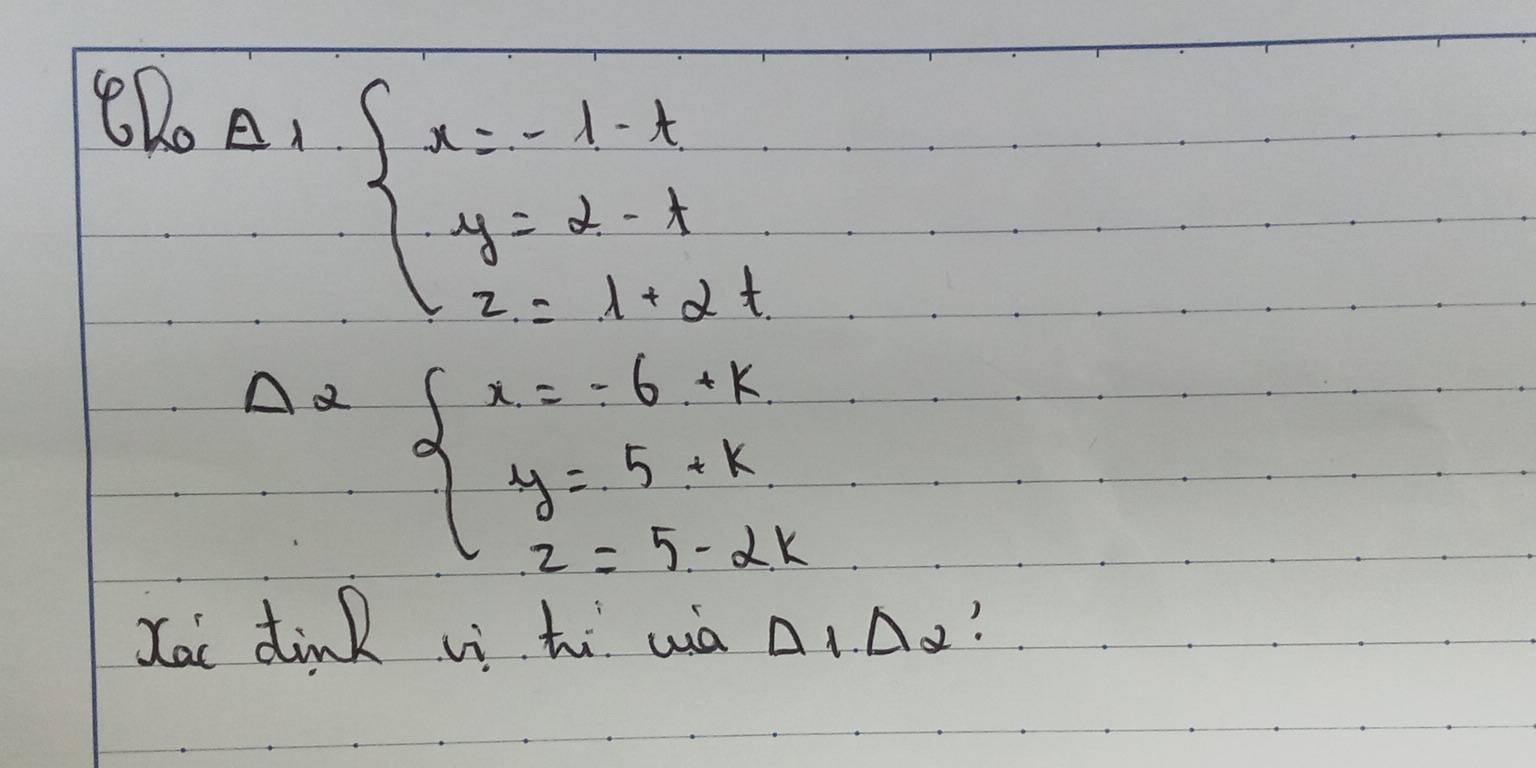 Cho Δ1 { x = - 1 - t
y = 2 - t
z = 1 + 2t
Δ2 { x = - 6 + K
y = 5 + K
z = 5 - 2K
Xác định vị trí của Δ1 Δ2?